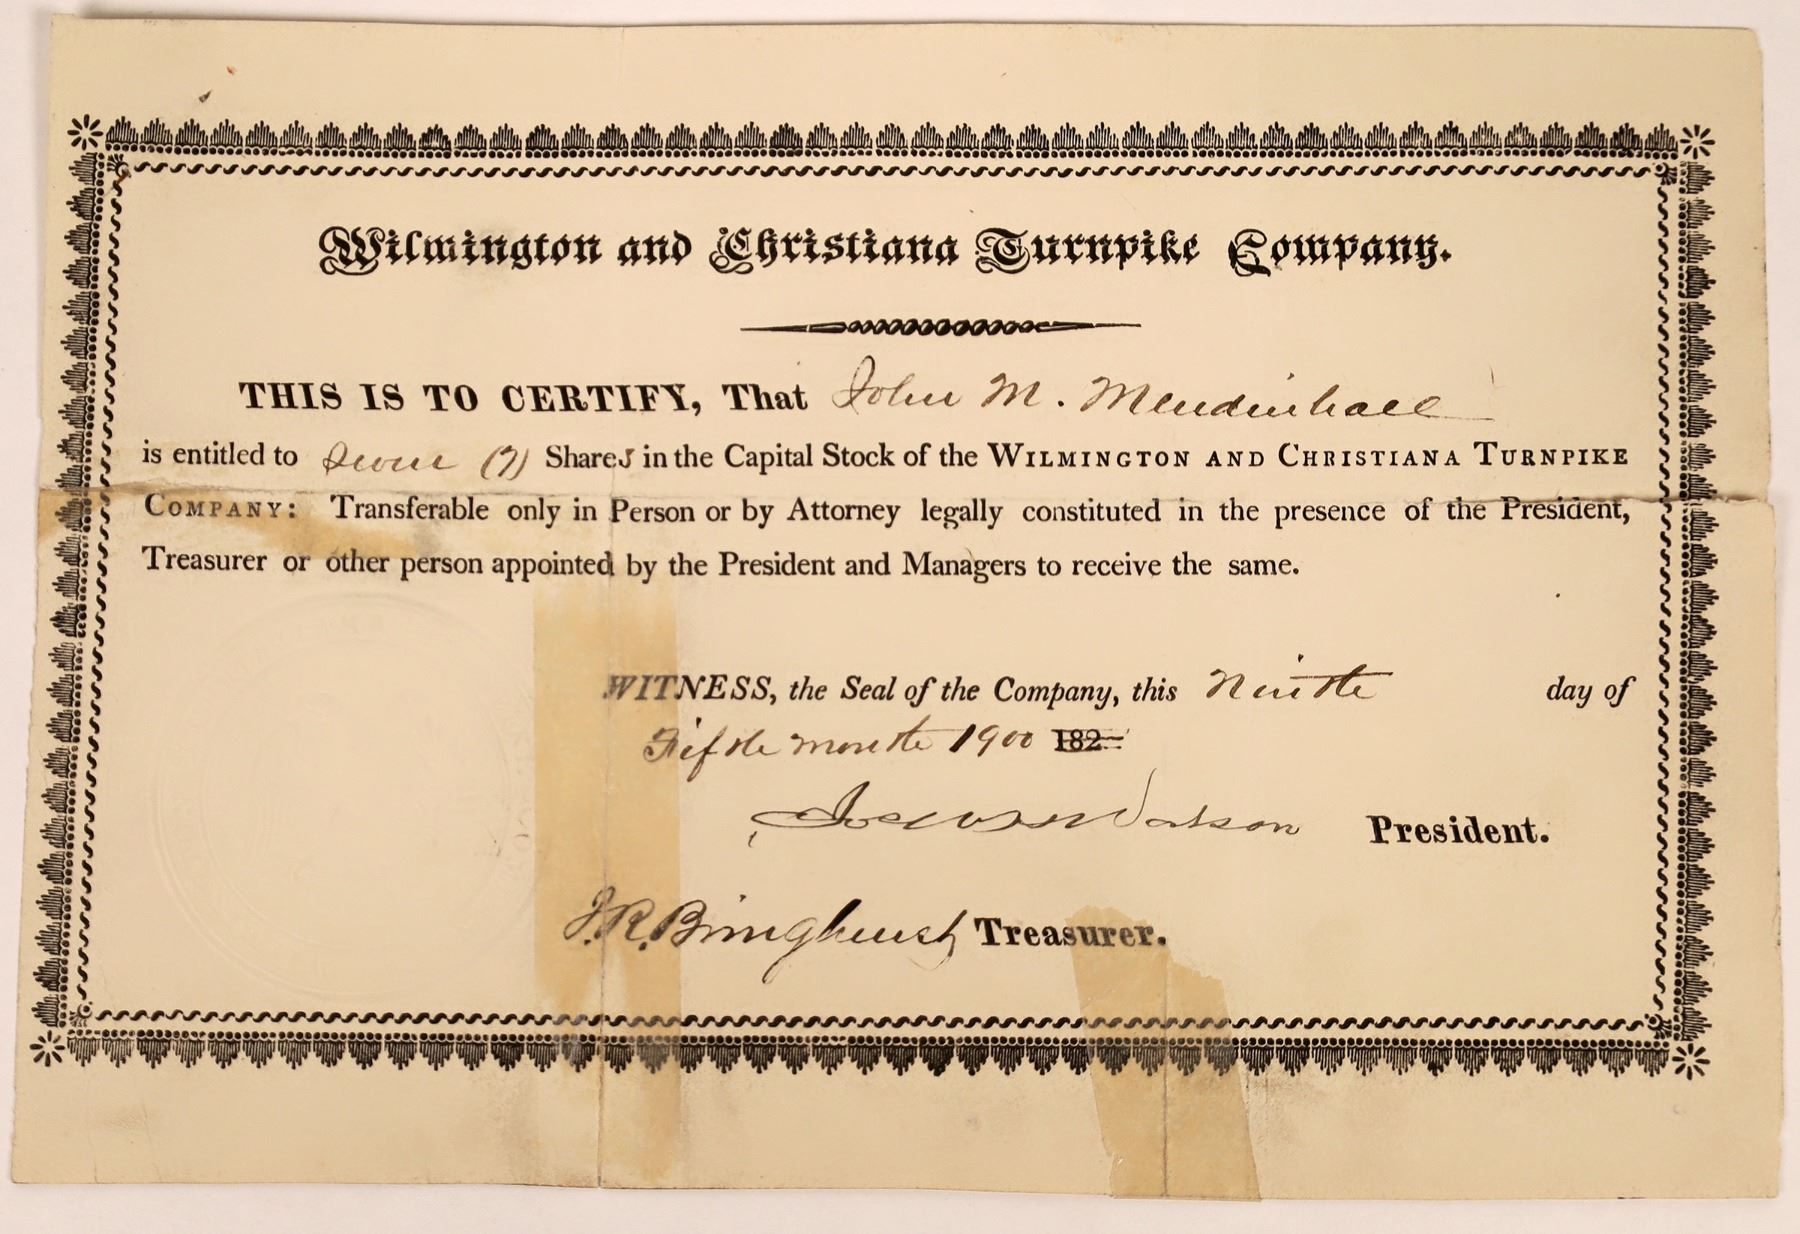 Wilmington and Christiana Turnpike Company.
THIS IS TO CERTIFY, That John M. Mendinhall
is entitled to Seven (7) Shares in the Capital Stock of the WILMINGTON AND CHRISTIANA TURNPIKE
COMPANY: Transferable only in Person or by Attorney legally constituted in the presence of the President,
Treasurer or other person appointed by the President and Managers to receive the same.
WITNESS, the Seal of the Company, this Ninth day of
Fifth month 1900 182
President.
J. R. Bringhurst Treasurer.